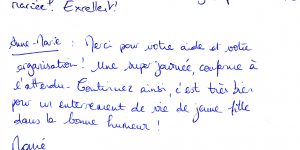 mariée! Excellent!
Anne-Marie : Merci pour votre aide et votre
organisation! Une super journée, conforme à
l'attendu. Continuez ainsi, c'est très bien
pour un enterrement de vie de jeune fille
dans la bonne humeur!